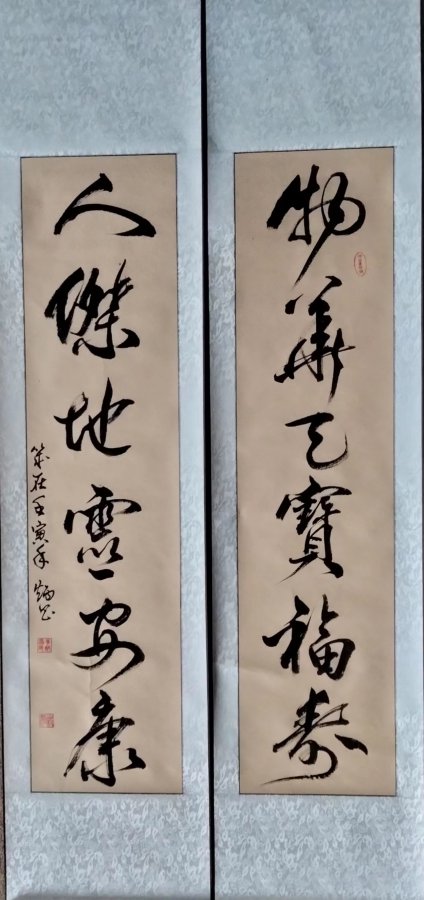 物華天寶福壽
人傑地靈安康
歲在壬寅年